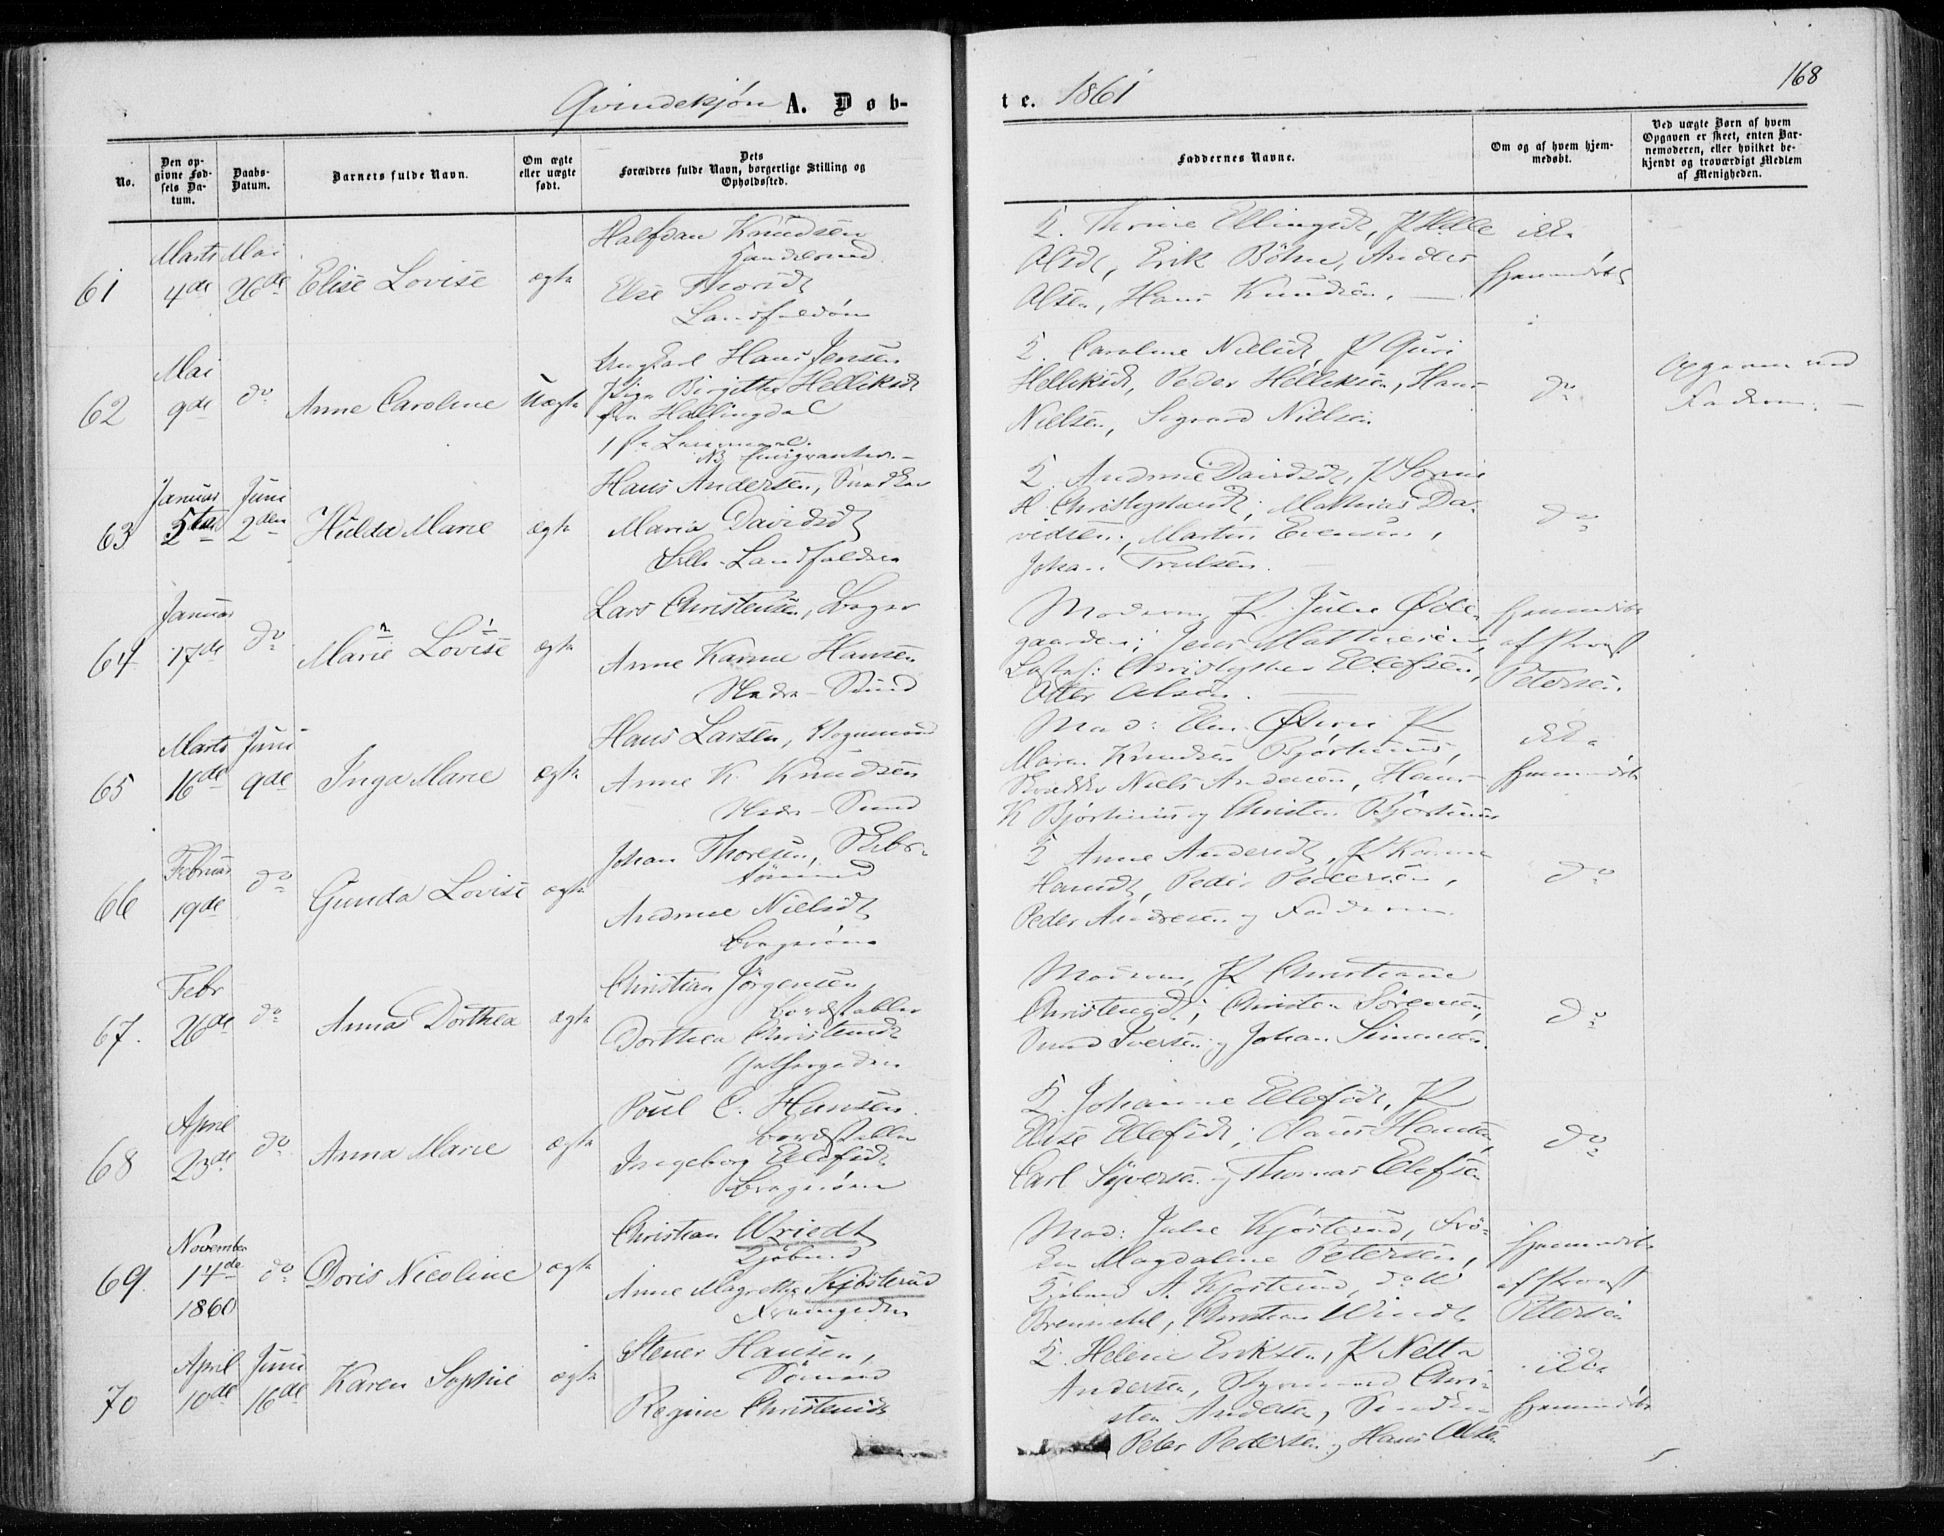 Qvindekjøn A. Døb-
te. 1861
168
No.
Den op-
givne Fød-
sels Da-
tum.
Daabs-
Datum.
Barnets fulde Navn.
Om ægte
eller uægte
født.
Dets
Forældres fulde Navn, borgerlige Stilling og
Opholdssted.
Faddernes Navne.
Om og af hvem hjem-
medøbt.
Ved uægte Børn af hvem
Opgaven er skeet, enten Bar-
nemoderen, eller hvilket be-
kjendt og troværdigt Medlem
af Menigheden.
61
Marts
4de
Mai
26de
Elise Lovise
ægte
Halfdan Knudsen
Else Thorsdt
5. Thrine Ellingsdt, P Helle
Olsdt, Erik Böhn, Anders
Olsen, Hans Knudsen.
ikke
hjemmedøbt
62
Mai
9de
do
Anne Caroline
Uægte
Ungkarl Hans Jensen
Pige Birgitte Helliksdt
fra Hallingdal
NB Emigranter
5. Caroline Nielsdt, P Guri
Helliksdt, Peder Helleksen, Hans
Nielsen, Sigvard Nielsen
do
Opgaven ved
Faderen.
63
Januar
5te
Juni
2den
Hulda Marie
ægte
Hans Andersen, Snedker
Maria Davidsdt
5. Andrine Davidsdt, P
H Christophersdt, Mathias Da-
vidsen, Martin Evensen,
Johan Trulsen.
do
64
Januar
17de
do
Marie Lovise
ægte
Lars Christensen, Bager
Anne Karine Hansen
Nedre-Sund
Moderen, P. Julie Øde-
gaarden; Jens Mathiesen,
Christopher Ellefsen,
Olsen.
hjemmedøbt
af Provst
Petersen.
65
Marts
16de
Juni
9de
Inga Marie
Ægte
Hans Larsen, Vognmand
Anne K. Knudsen
Nedre-Sund
Mad: P
Maren Knudsen Bjørhuus,
Skrædder Niels Andersen, Hans
K Bjørhuus og Christen Bjørhuus
ikke
hjemmedøbt
66
Februar
19de
do
Gunda Lovise
ægte
Johan Thoresen, Skibs-
tømmermand
Andrine Nielsdt
Bragernæs
5 Anne Andersdt, P Karen
Hansdt, Peder Pedersen,
Peder Andresen og Faderen.
do
67.
Febr
26de
do
Anna Dorthea
ægte
Christian Jörgensen,
Bordstabler
Dorthea Christensdt
Moderen, P Christiane
Christensdt; Christen Sörensen,
Iversen og Johan Simensen.
do
68
April
23de
do
Anna Marie
ægte
Poul C. Hansen.
Bordstabler
Ingeborg Ellefsdt
Bragernæs
5. Johanne Ellefsdt, P
Elise Ellefsdt; Claus Hansen,
Carl Syversen og Thomas Ellefsen
do
69.
November
14de
1860
do
Doris Nicoline
ægte
Christian Wriedt
Kjöbmd
Anne Magrethe Kjösterud
Mad: Julie Kjösterud, Frö-
ken Magdalene Petersen,
Kjöbmd A. Kjösterud, do
Christian Wriedt
hjemmedøbt
af Provst
Petersen
70
April
10de
Juni
16de
Karen Sophie
ægte
Stener Hansen,
Sömand
Regine Christensdt
5. Helene Eriksen, P Netta
Andersen, Styrmand Chri-
sten Andersen,
Peter Pedersen, Hans Olsen
ikke
hjemmedøbt